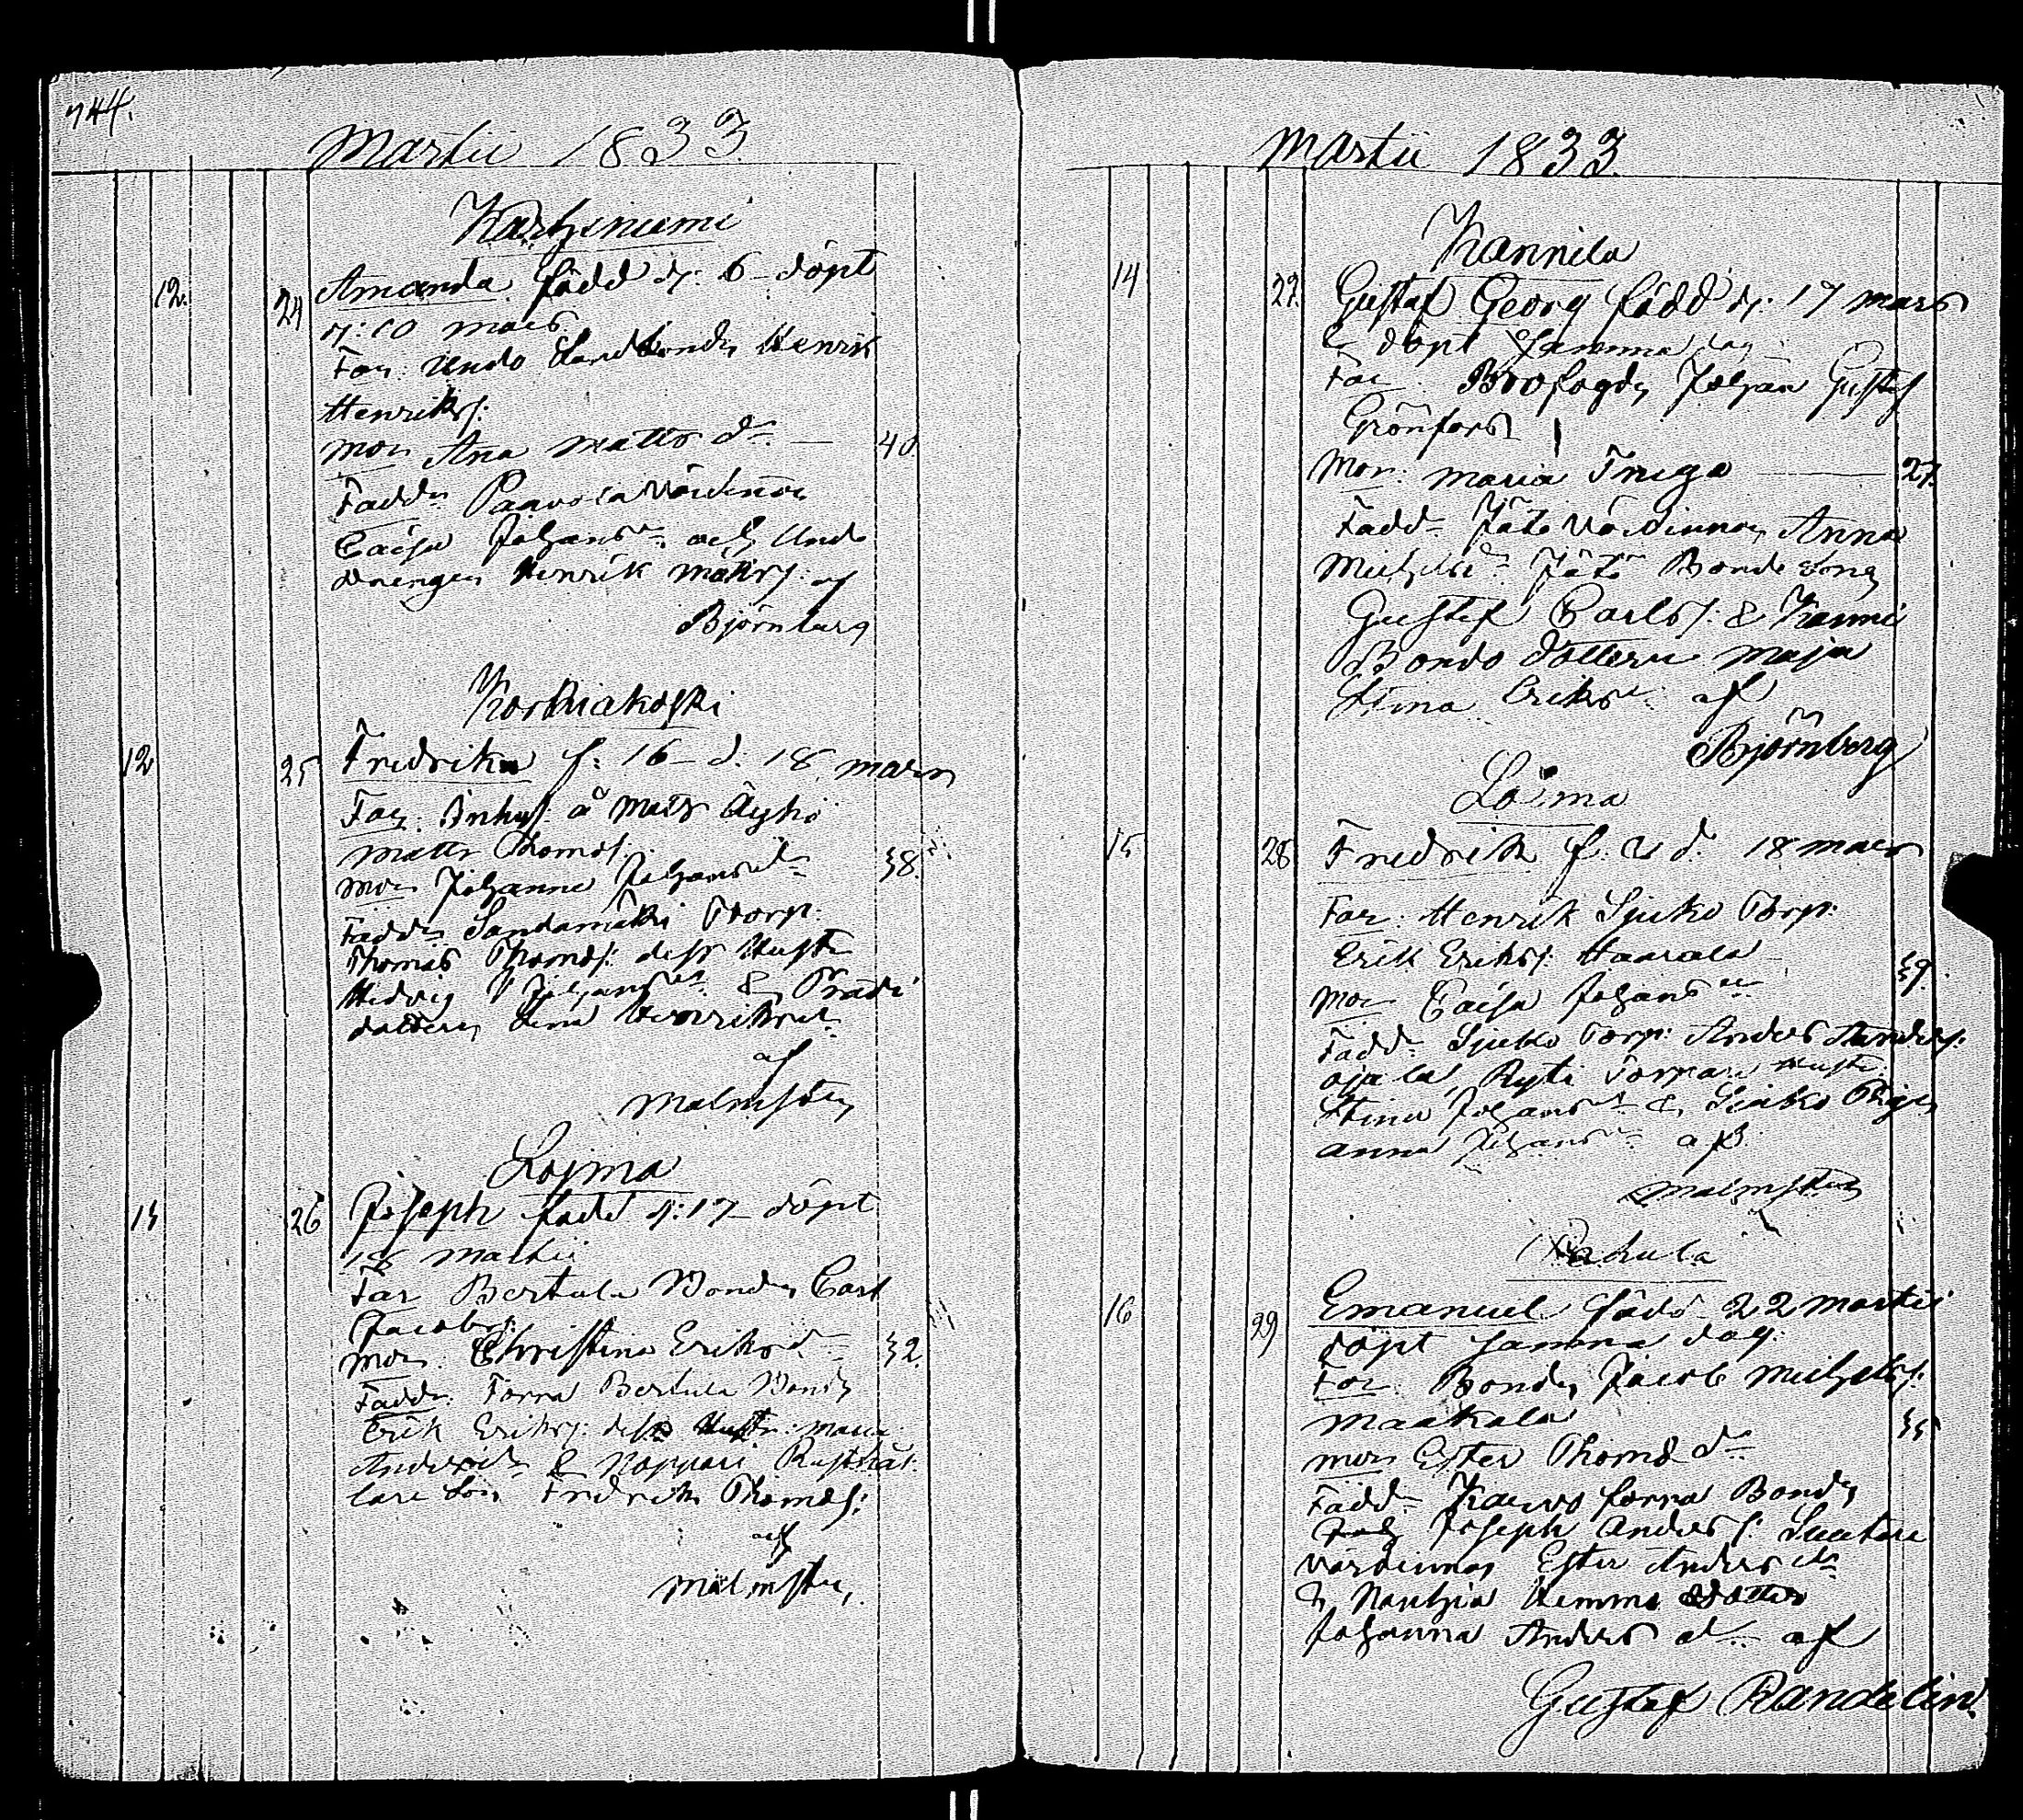 744.
Martii 1833.
Karhiniemi
12. 24 Amanda född d: 6 döpt
d: 10 mars.
Far: Undo Landbonden Henrik
Henrikss:
Mor Ana Matts dr — 40
Fadd: Paavola Värdinnan
Caisa Johansdr och Undo
drengen Henrik Matts: af
Björnberg
Korkiakoski
12 25 Fredrika f: 16 d. 18 mars
Far: Inhys: å Mats Äyhö
Matts Thomas:
Mor Johanna Johansdr 38.
Fadd: Sandamäki Torp:
Thomas Thomas: dess Hustr
Hedvig Johansdr &
dottern Henriksdr
af
Malmsten
Loima
15 26 Joseph född d: 17 döpt
18 Martii
Far Bertula Bonden Carl
Jacobs:
Mor: Christina Eriksdr 32.
Fadd: Förra Bertula Bonden
Erik Eriks: dess Hustr: Maria
Andersdr & Nappari Rusthål-
lare Son Fredrik Thomas:
af
Malmsten.
Martii 1833.
Kannila
14 27 Gustaf Georg född d: 17 mars
& döpt Samma dag
Far: Brofogden Johan Gustaf
Grönfors
Mor: Maria Frega — 27.
Fadd: Värdinnan Anna
Michelsdr Bonde Sonen
Gustaf Carls: & Kanni
Bonde dottern Maja
Stina Eriksdr af
Björnberg
Loima
15 28 Fredrik f: & d. 18 mars
Far: Henrik Sjuko Torp:
Erik Eriks: Haarala
Mor Caisa Johansdr 39.
Fadd: Sjuko Torp: Anders Anders:
Ojala, Ryti Torpare Hustr:
Stina Johansdr & Sjuko Pigan
Anna Johansdr af
Malmsten
16 29 Emanuel född 22 Martii
döpt Samma dag.
Far: Bonden Jacob Michels:
Maakala 35
Mor Ester Thomas dr
Fadd: Kauvo förra Bonden
Joseph Anders: Suutari
Värdinnan Ester Anders dr
& Hemma Dotter
Johanna Anders dr af
Gustaf Randelin.